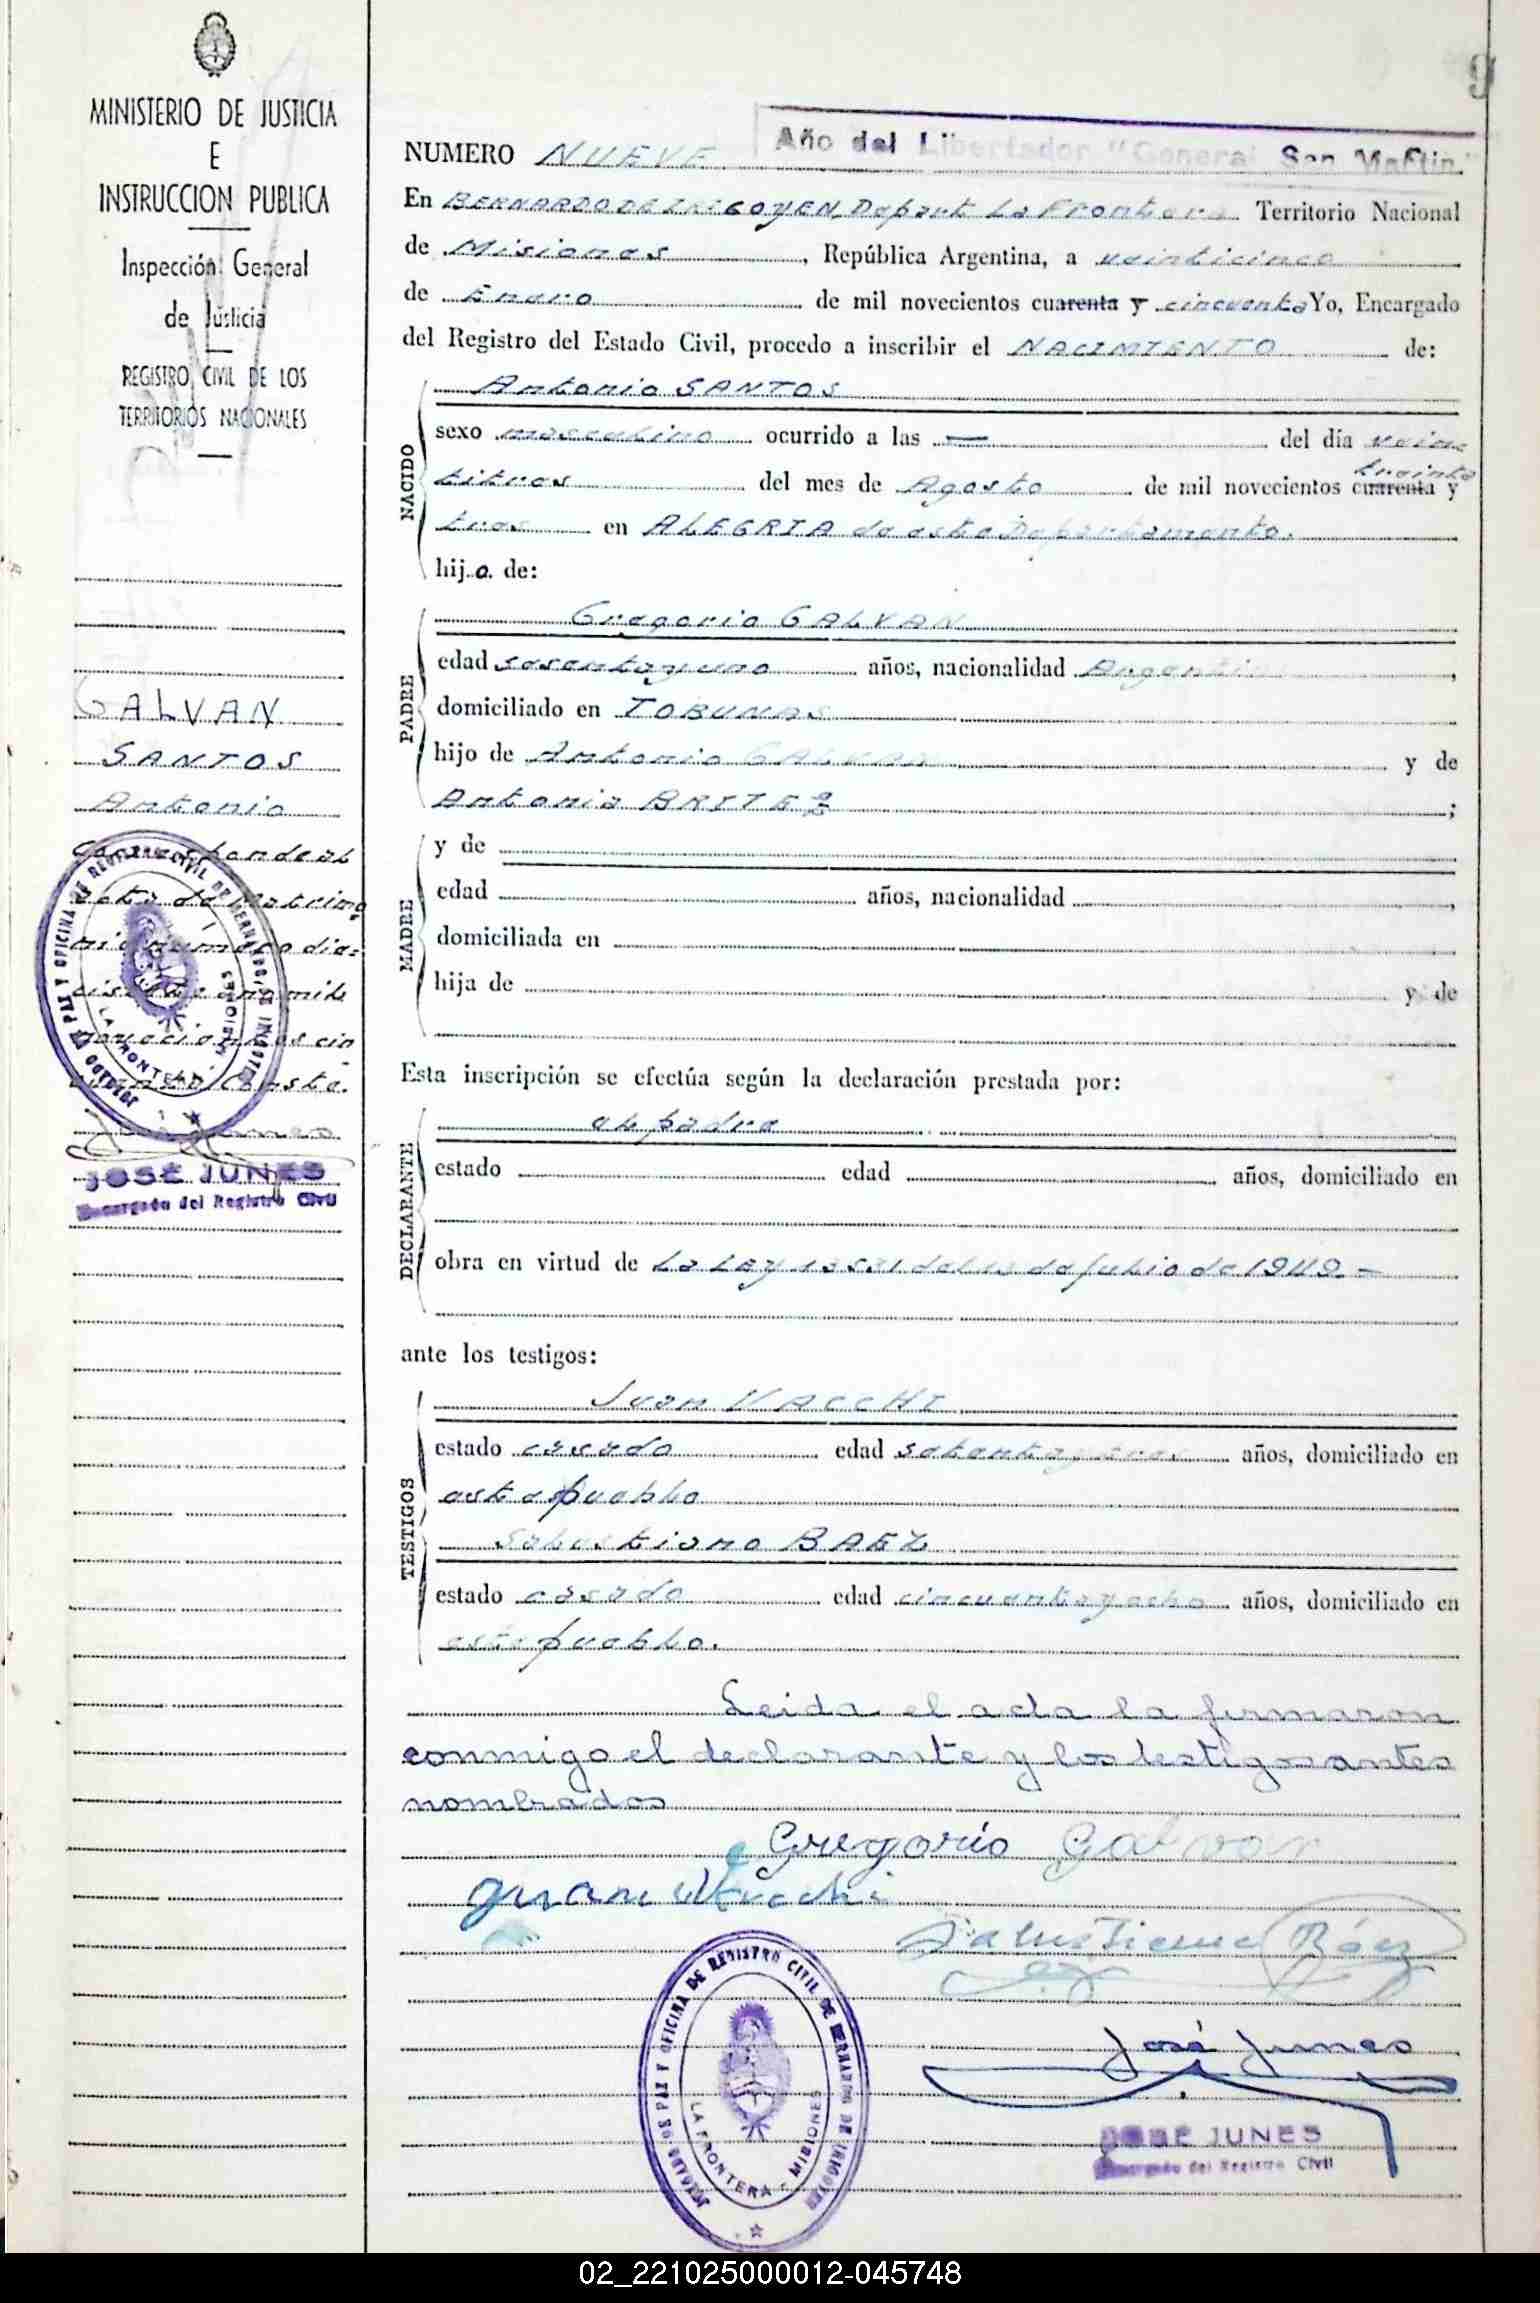 MINISTERIO DE JUSTICIA
E
INSTRUCCION PUBLICA
Inspección General
de Justicia
REGISTRO CIVIL DE LOS
TERRITORIOS NACIONALES
GALVAN
SANTOS
Antonio
Corresponde al
acta de Matrimo
nio número die=
cisiete año mil
novecientos cin
cuenta Conste.
José Junes
JOSÉ JUNES
Encargado del Registro Civil
JUZGADO DE PAZ Y OFICINA DE REGISTRO CIVIL DE BERNARDO DE IRIGOYEN
LA FRONTERA - MISIONES
9
Año del Libertador "General San Martin"
NUMERO NUEVE
En BERNARDO DE IRIGOYEN, Depart. La Frontera Territorio Nacional
de Misiones, República Argentina, a veinticinco
de Enero de mil novecientos cuarenta y cincuenta Yo, Encargado
del Registro del Estado Civil, procedo a inscribir el NACIMIENTO de:
NACIDO
Antonio SANTOS
sexo masculino ocurrido a las — del día vein
treinta
titres del mes de Agosto de mil novecientos cuarenta y
tres en ALEGRIA de este Departamento.
hijo de:
PADRE
Gregorio GALVAN
edad sesenta y uno años, nacionalidad Argentin
domiciliado en TOBUNAS
hijo de Antonio GALVAN y de
Antonia BRITEZ;
MADRE
y de
edad años, nacionalidad
domiciliada en
hija de y de
Esta inscripción se efectúa según la declaración prestada por:
DECLARANTE
el padre
estado edad años, domiciliado en
obra en virtud de La Ley 13531 del 13 de Julio de 1949.—
ante los testigos:
TESTIGOS
Juan VACCHI
estado casado edad setenta y tres años, domiciliado en
este pueblo
Salustiano BAEZ
estado casado edad cincuenta y ocho años, domiciliado en
este pueblo.
Leida el acta la firmaron
conmigo el declarante y los testigos antes
nombrados
Gregorio Galvan
Juan Vacchi
Salustiano Báez
José Junes
JOSÉ JUNES
Encargado del Registro Civil
JUZGADO DE PAZ Y OFICINA DE REGISTRO CIVIL DE BERNARDO DE IRIGOYEN
LA FRONTERA - MISIONES
02_221025000012-045748